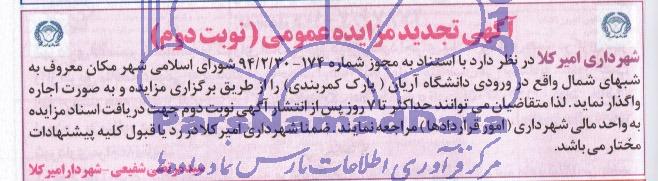 آگهی تجدید مزایده عمومی ( نوبت دوم)
شهرداری امیرکلا در نظر دارد با استناد به مجوز شماره ۱۷۴-۹۴/۲/۳۰ شورای اسلامی شهر مکان معروف به
شبهای شمال واقع در ورودی دانشگاه آریان ( پارک کمربندی) را از طریق برگزاری مزایده و به صورت اجاره
واگذار نماید. لذا متقاضیان می توانند حداکثر تا ۷ روز پس از انتشار آگهی نوبت دوم جهت دریافت اسناد مزایده
به واحد مالی شهرداری (امور قراردادها) مراجعه نمایند. ضمنا شهرداری امیرکلا در رد یا قبول کلیه پیشنهادات
مختار می باشد.
شفیعی - شهردار امیرکلا
ParsNamadData
مرکز فرآوری اطلاعات پارس نماد داده ها